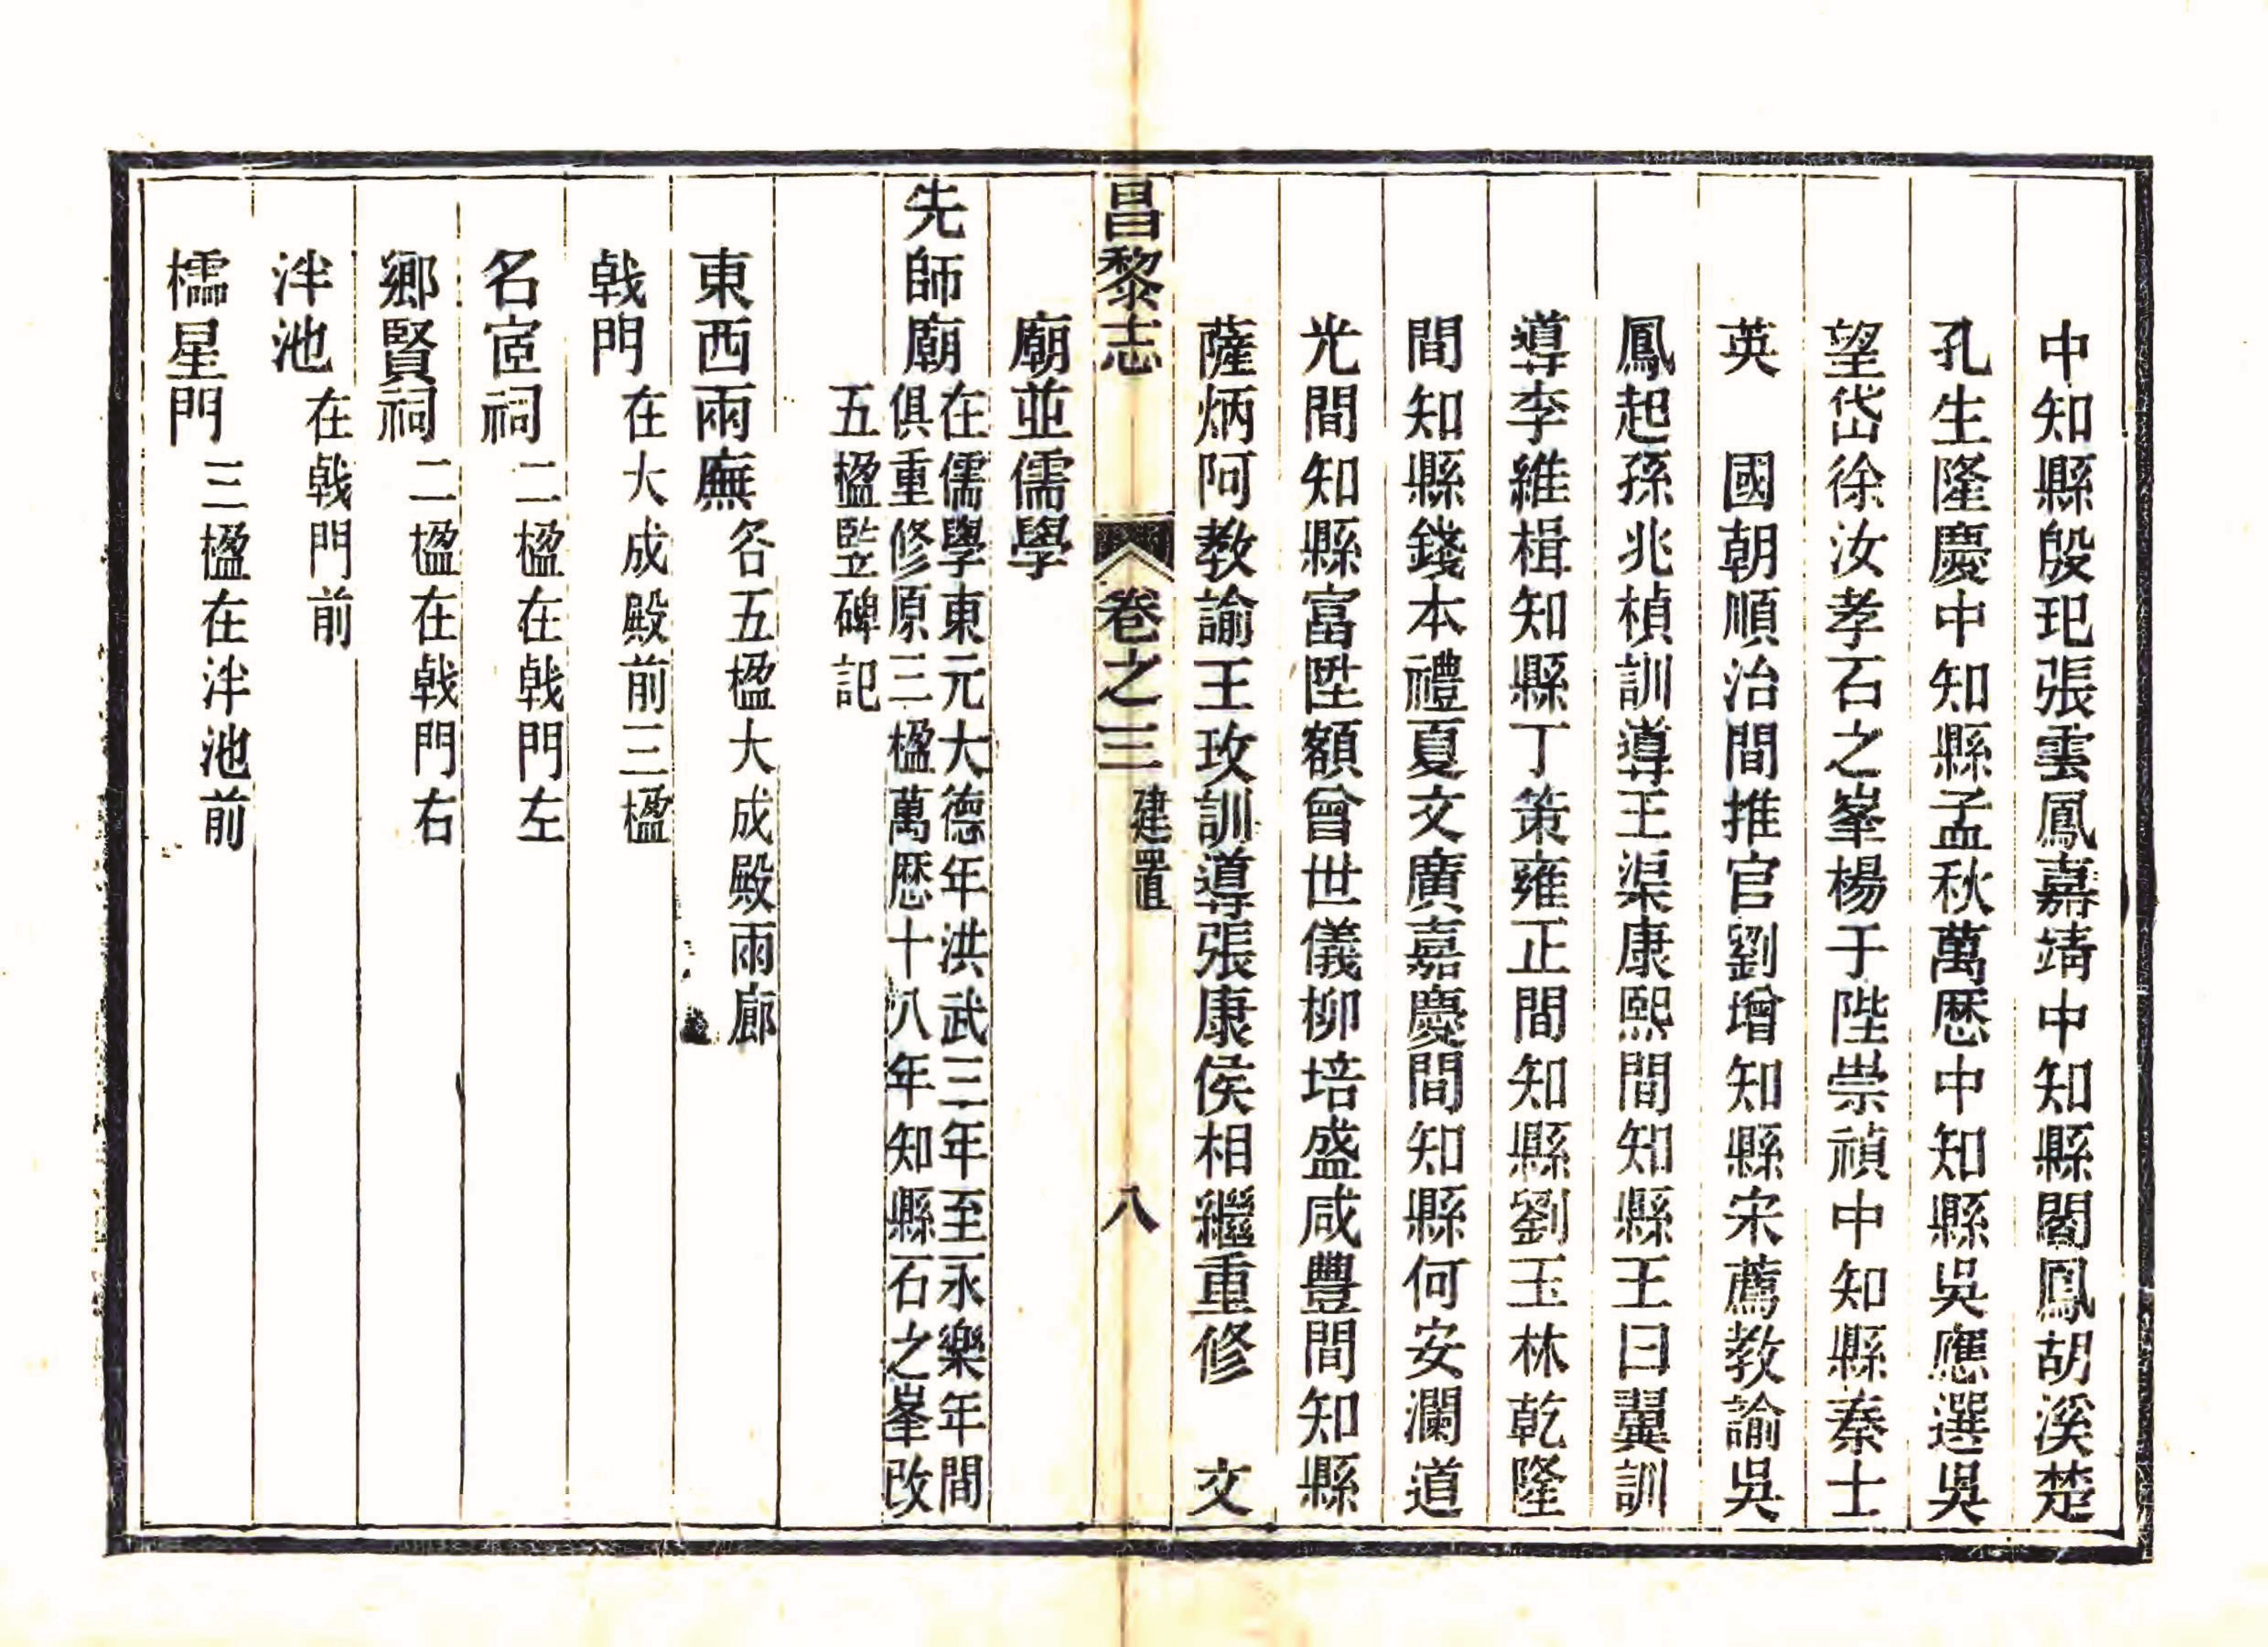 中知縣殷玘張雲鳳嘉靖中知縣閻鳳胡溪楚
孔生隆慶中知縣孟秋萬曆中知縣吳應選吳
望岱徐汝孝石之峯楊于陛崇禎中知縣秦士
英　國朝順治間推官劉增知縣宋薦教諭吳
鳳起孫兆楨訓導王渠康熙間知縣王曰翼訓
導李維楫知縣丁策雍正間知縣劉玉林乾隆
間知縣錢本禮夏文廣嘉慶間知縣何安瀾道
光間知縣富陞額曾世儀柳培盛咸豐間知縣
薩炳阿教諭王玫訓導張康侯相繼重修　文
昌黎志　卷之三　建置　八
廟並儒學
先師廟在儒學東元大德年洪武三年至永樂年間
俱重修原三楹萬曆十八年知縣石之峯改
五楹竪碑記
東西兩廡各五楹大成殿兩廊
戟門在大成殿前三楹
名宦祠二楹在戟門左
鄉賢祠二楹在戟門右
泮池在戟門前
櫺星門三楹在泮池前